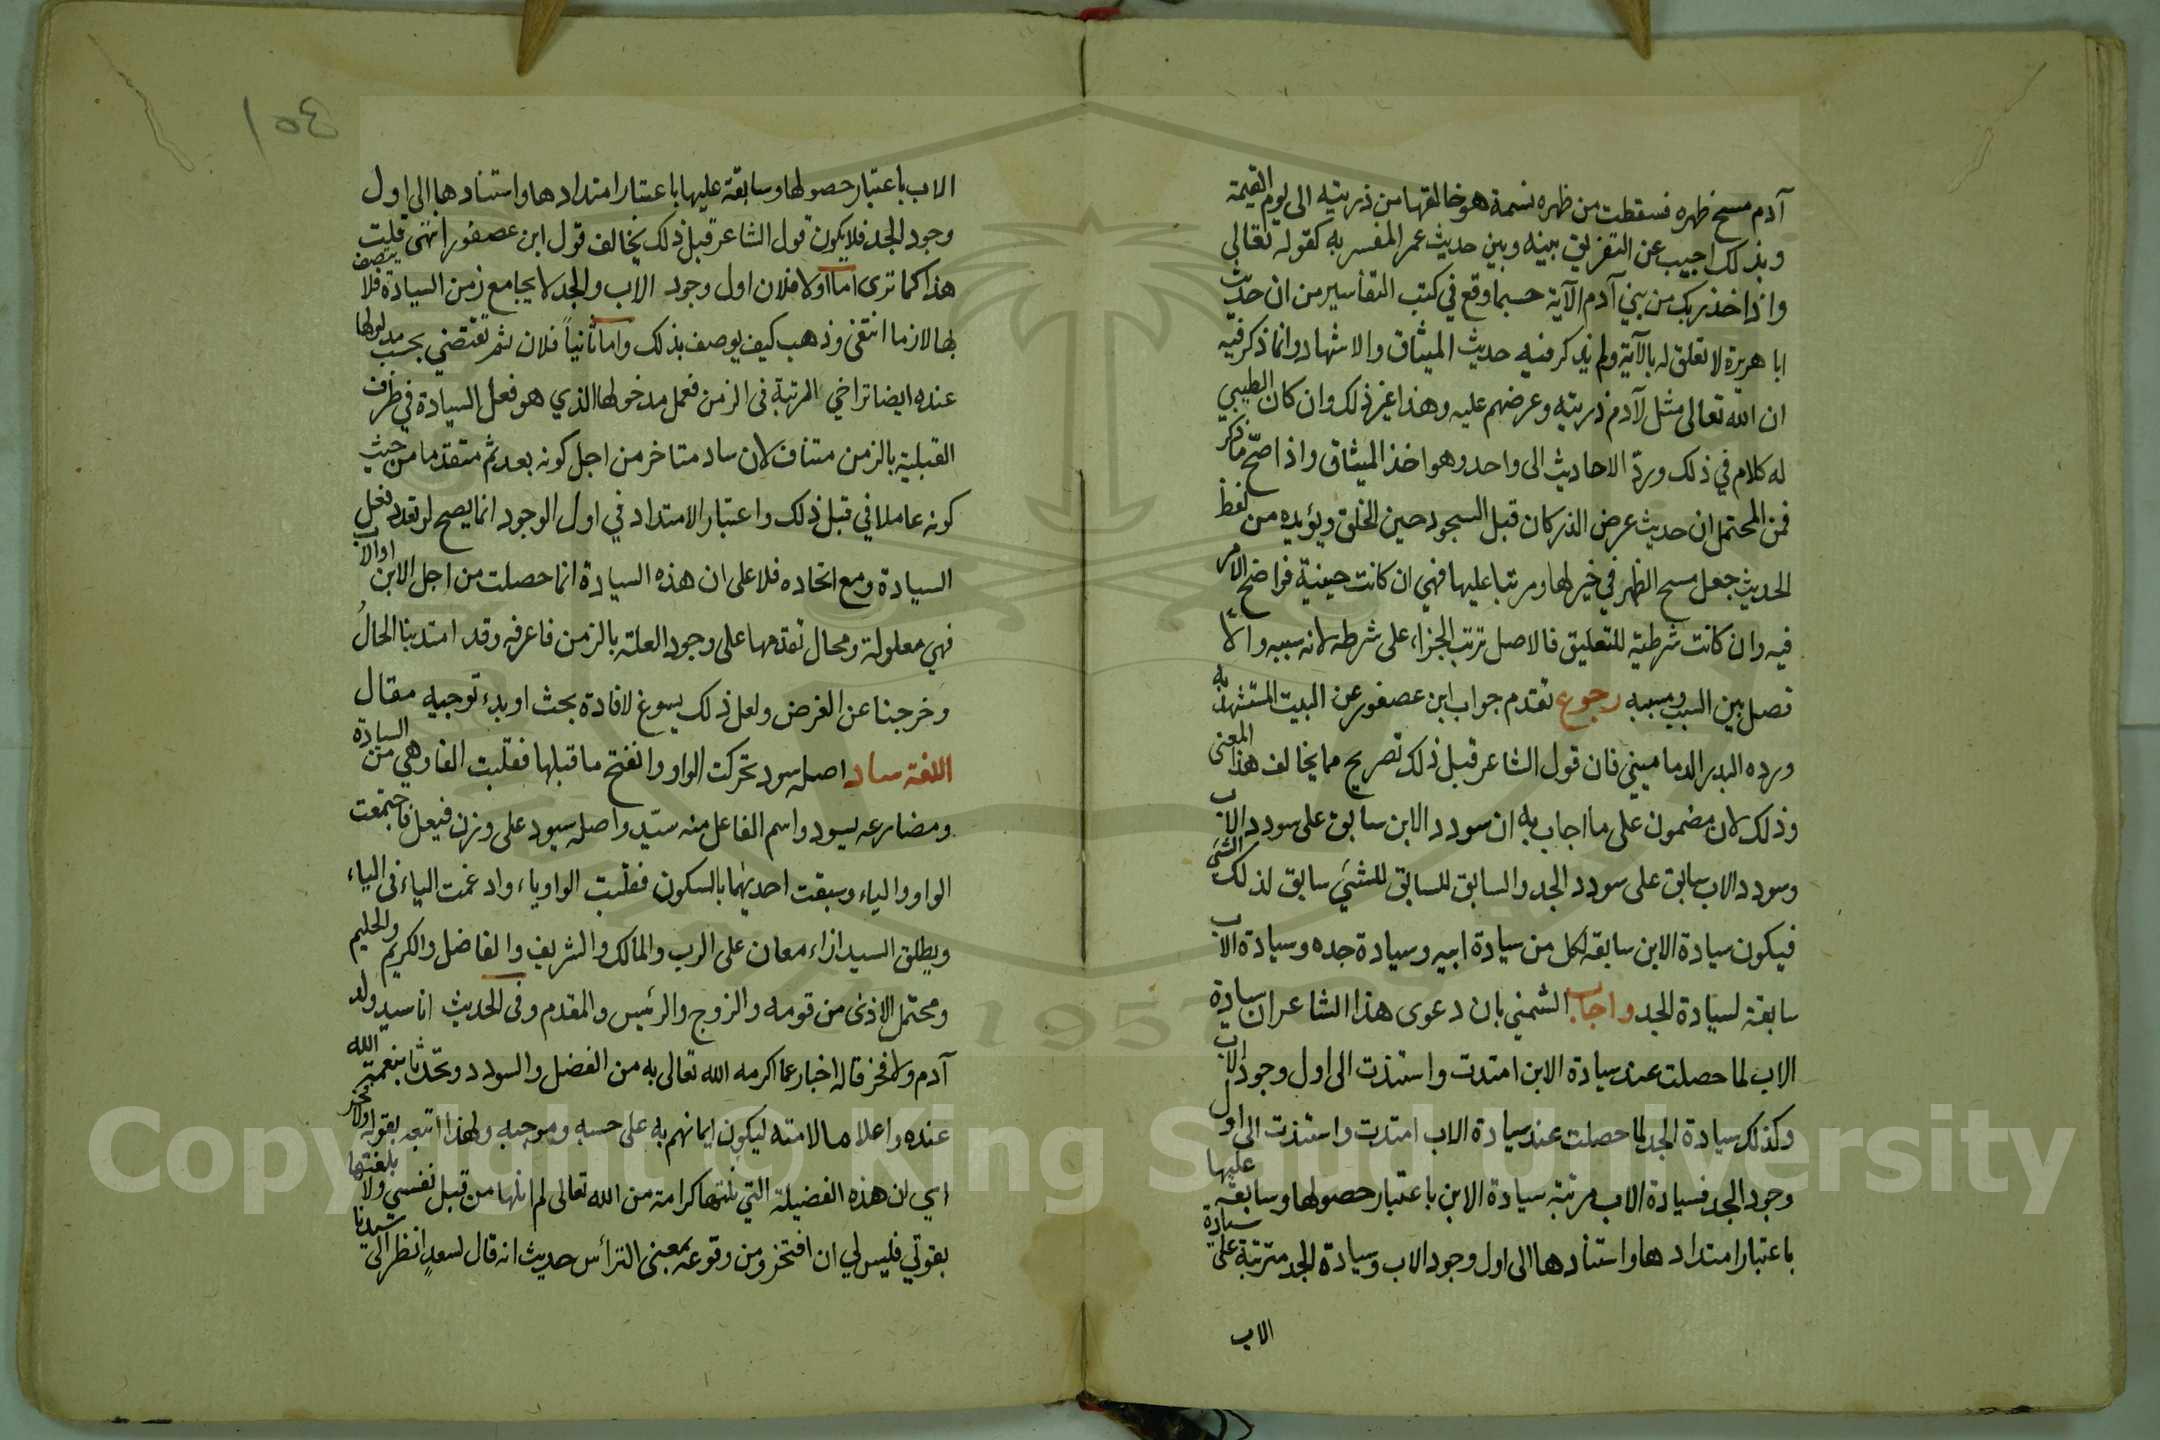 آدم مسح ظهره فسقطت من ظهره نسمة هو خالقها من ذريته الى يوم القيمة
وبذلك اجيب عن التفريق بينه وبين حديث عمر المفسر به كقوله تعالى
واذ اخذ ربك من بني آدم الآية حسبما وقع في كتب التفاسير من ان حديث
ابا هريرة لا تعلق له بالآية ولم يذكر فيه حديث الميثاق والاشهاد وانما ذكر فيه
ان الله تعالى مثل لآدم ذريته وعرضهم عليه وهذا غير ذلك وان كان الطيبي
له كلام في ذلك وردّ الاحاديث الى واحد وهو اخذ الميثاق واذا صحّ ما ذكر
فمن المحتمل ان حديث عرض الذر كان قبل السجود حين الخلق ويؤيده من لفظ
الحديث جعل مسح الظهر في خبر لها ومرتبا عليها فهي ان كانت حينية فواضح الامر
فيه وان كانت شرطية للتعليق فالاصل ترتب الجزاء على شرطه لانه سببه والّا
فصل بين السبب ومسببه رجوع تقدم جواب ابن عصفور عن البيت المستشهد به
ورده البدر الدماميني فان قول الشاعر قبل ذلك تصريح مما يخالف هذا المعنى
وذلك لان مضمون على ما اجاب به ان سودد الابن سابق على سودد الاب
وسودد الاب سابق على سودد الجد والسابق للسابق للشيء سابق لذلك الشيء
فيكون سيادة الابن سابقه لكل من سيادة ابيه وسيادة جده وسيادة الاب
سابقة لسيادة الجد واجاب الشمني بان دعوى هذا الشاعر ان سيادة
الاب لما حصلت عند سيادة الابن امتدت واستندت الى اول وجود الاب
وكذلك سيادة الجد لما حصلت عند سيادة الاب امتدت واستندت الى اول
وجود الجد فسيادة الاب مرتبة سيادة الابن باعتبار حصولها وسابقة عليها
باعتبار امتدادها واستنادها الى اول وجود الاب وسيادة الجد مترتبة على سيادة
الاب
١٥٤
الاب باعتبار حصولها وسابقة عليها باعتبار امتدادها واستنادها الى اول
وجود الجد فلا يكون قول الشاعر قبل ذلك يخالف قول ابن عصفور انتهى قلت
هذا كما ترى اما اولا فلان اول وجود الاب والجد لا يجامع زمن السيادة فلا يتصف
بها لازما انتفى وذهب كيف يوصف بذلك واما ثانياً فلان ثم تقتضي بحسب مدلولها
عنده ايضا تراخي المرتبة في الزمن فعمل مدخولها الذي هو فعل السيادة في ظرف
القبلية بالزمن متناف لان ساد متاخر من اجل كونه بعد ثم متقدما من حيث
كونه عاملا في قبل ذلك واعتبار الامتداد في اول الوجود انما يصح لو تعدد فعل
السيادة ومع اتحاده فلا على ان هذه السيادة انما حصلت من اجل الابن او الاب
فهي معلولة ومحال تقدمها على وجود العلة بالزمن فاعرفه وقد امتد بنا الحالُ
وخرجنا عن الغرض ولعل ذلك يسوغ لافادة بحث او بدء توجيه مقال
اللغة ساد اصله سود تحركت الواو وانفتح ما قبلها فقلبت الفا وهي من السيادة
ومضارعه يسود واسم الفاعل منه سيّد واصله سيود على وزن فيعل فاجتمعت
الواو والياء وسبقت احديهما بالسكون فقلبت الواو ياء وادغمت الياء في الياء
ويطلق السيد ازاء معان على الرب والمالك والشريف والفاضل والكريم والحليم
ومحتمل الاذى من قومه والزوج والرئيس والمقدم وفي الحديث انا سيد ولد
آدم ولا فخر قاله اخبار عما اكرمه الله تعالى به من الفضل والسودد وتحدثا بنعمة الله
عنده واعلاما لامته ليكون ايمانهم به على حسبه وموجبه ولهذا اتبعه بقوله ولا فخر
اي ان هذه الفضيلة التي نلتها كرامة من الله تعالى لم انلها من قبل نفسي ولا بلغتها
بقوتي فليس لي ان افتخر ومن وقوعه بمعنى الترأس حديث انه قال لسعدٍ انظر الى سيدنا
Copyright © King Saud University
1957